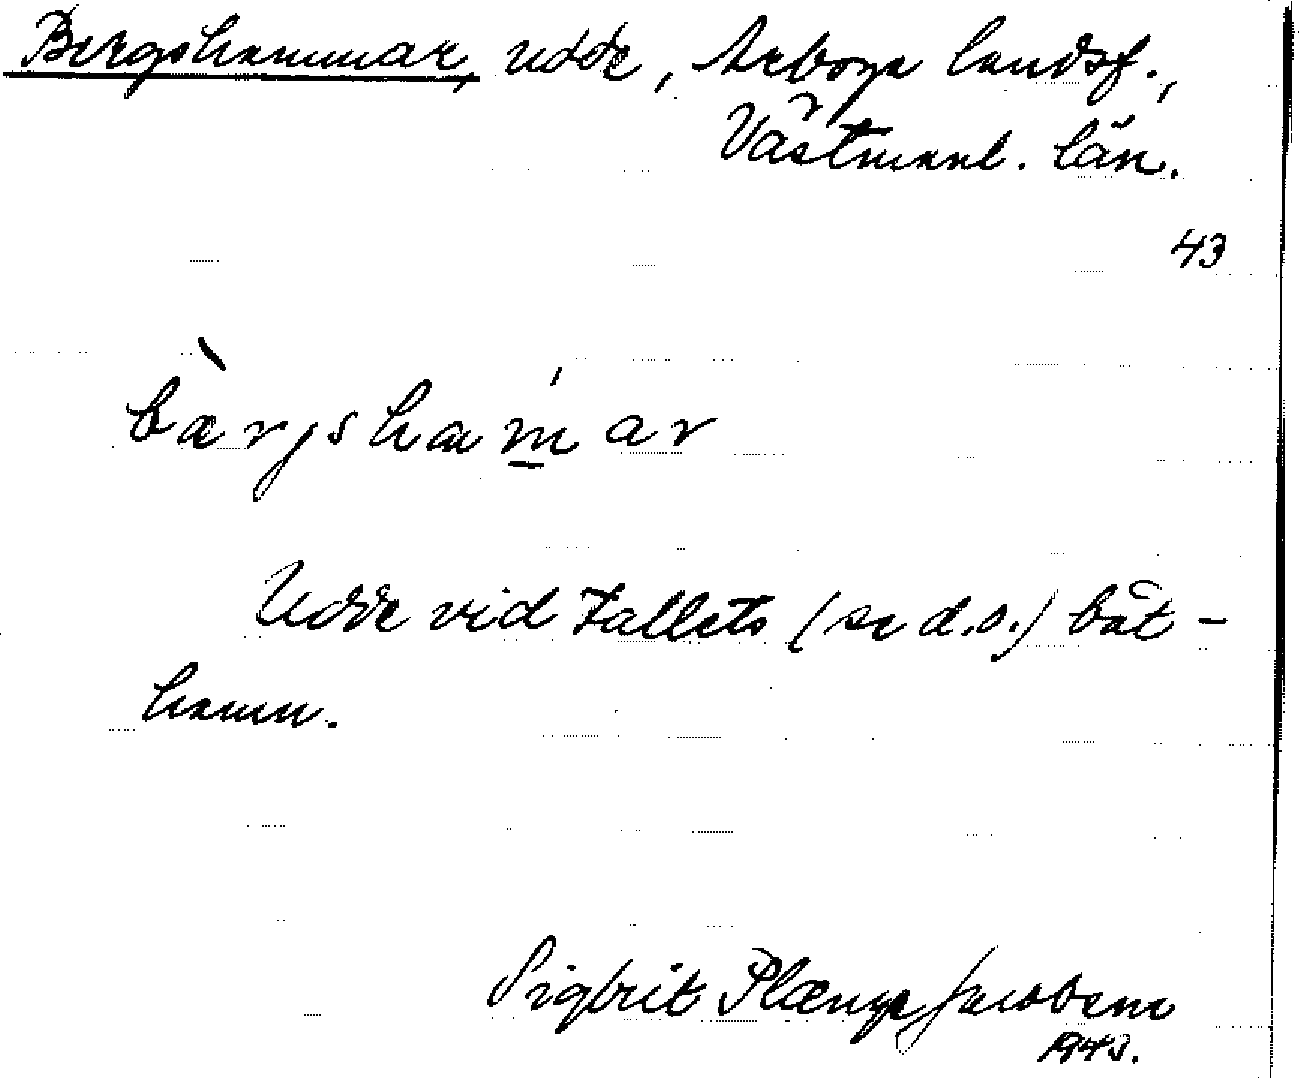 Bergshammar, udde, Arboga landsf.,
Västmanl. län.
43
bæ̀rjshaḿ̲ar
Udde vid Tallets (se d.o.) båt-
hamn.
Sigbrit Plænge Jacobson
1943.